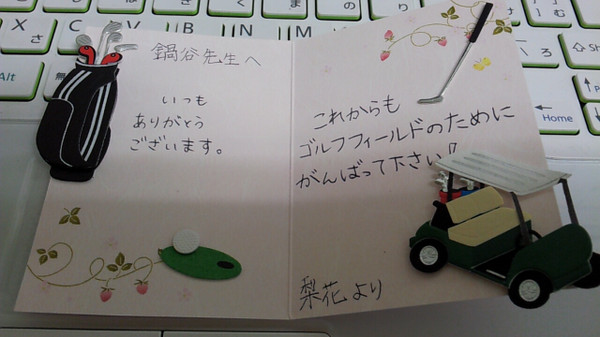 鍋谷先生へ
いつも
ありがとう
ございます。
これからも
ゴルフフィールドのために
がんばって下さい!
梨花より
X
C
B
N
M
さ
そ
Alt
無
む
ろ
Home